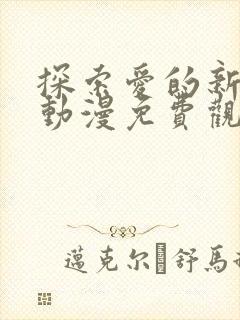 探索愛的新
動漫免費觀
邁克尔 舒馬